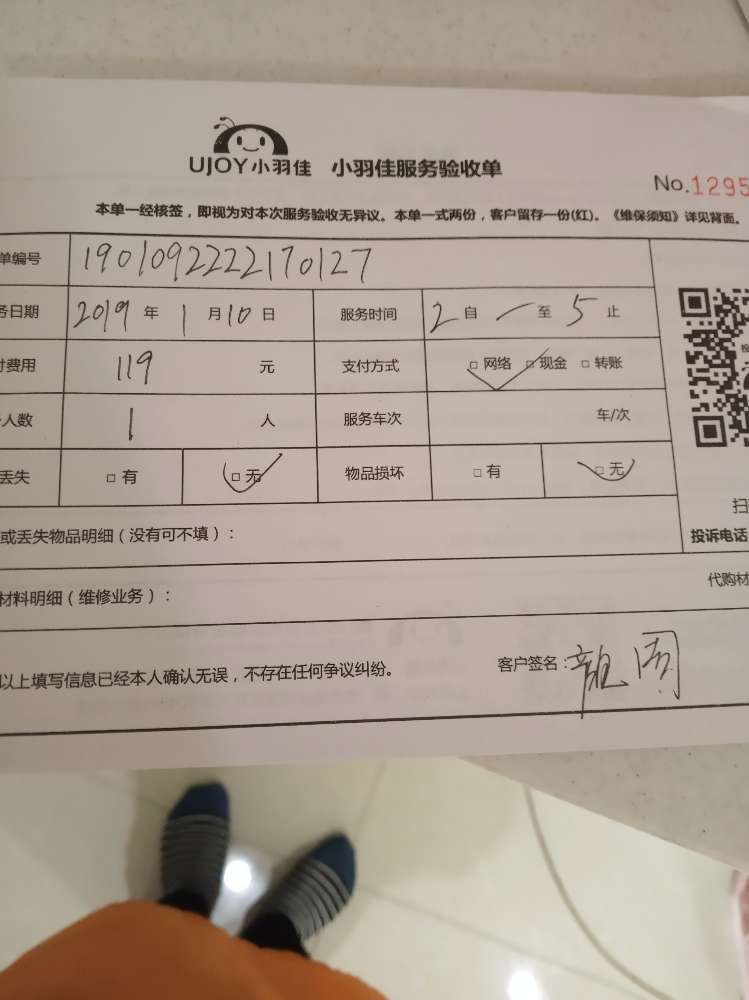 UJOY小羽佳 小羽佳服务验收单
No.1295
本单一经核签，即视为对本次服务验收无异议。本单一式两份，客户留存一份(红)。《维保须知》详见背面。
单编号 1901092222170127
务日期 2019 年 1 月 10 日 服务时间 2 自 一 至 5 止
付费用 119 元 支付方式 □ 网络 □ 现金 □ 转账
人数 1 人 服务车次 车/次
丢失 □ 有 □ 无 物品损坏 □ 有 □ 无
扫
或丢失物品明细（没有可不填）： 投诉电话
材料明细（维修业务）： 代购材
以上填写信息已经本人确认无误，不存在任何争议纠纷。 客户签名：